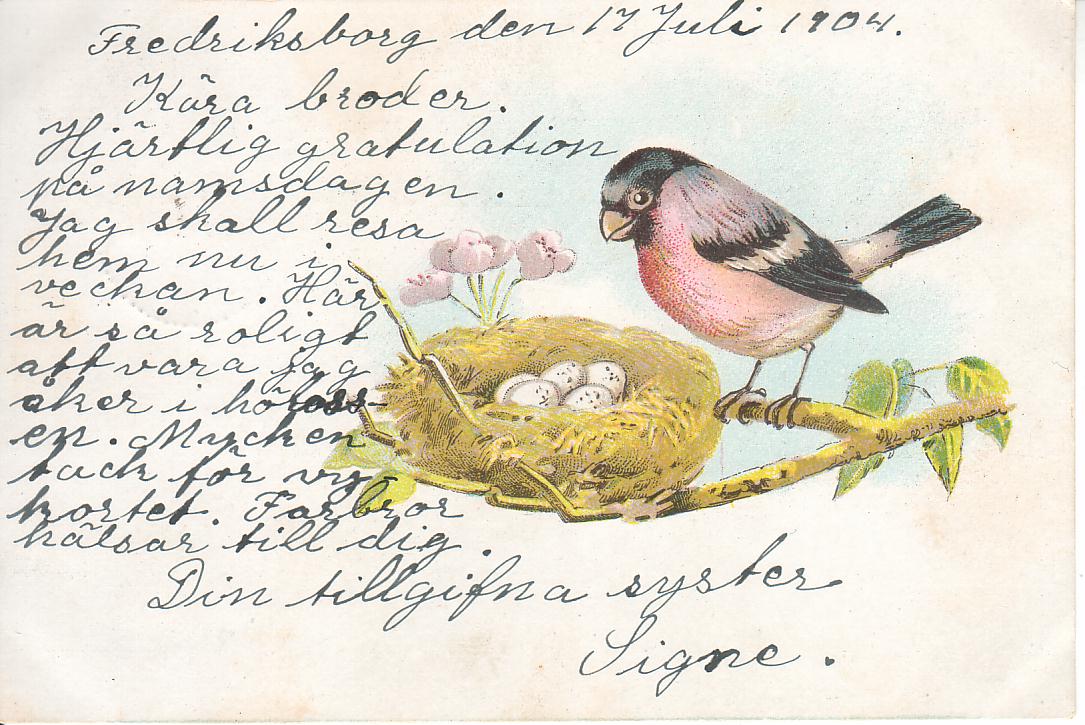 Fredriksborg den 17 Juli 1904.
Kära broder.
Hjärtlig gratulation
på namsdagen.
Jag skall resa
hem nu i
veckan. Här
är så roligt
att vara jag
åker i hölass-
en. Mycken
tack för vy
kortet. Farbror
hälsar till dig.
Din tillgifna syster
Signe.